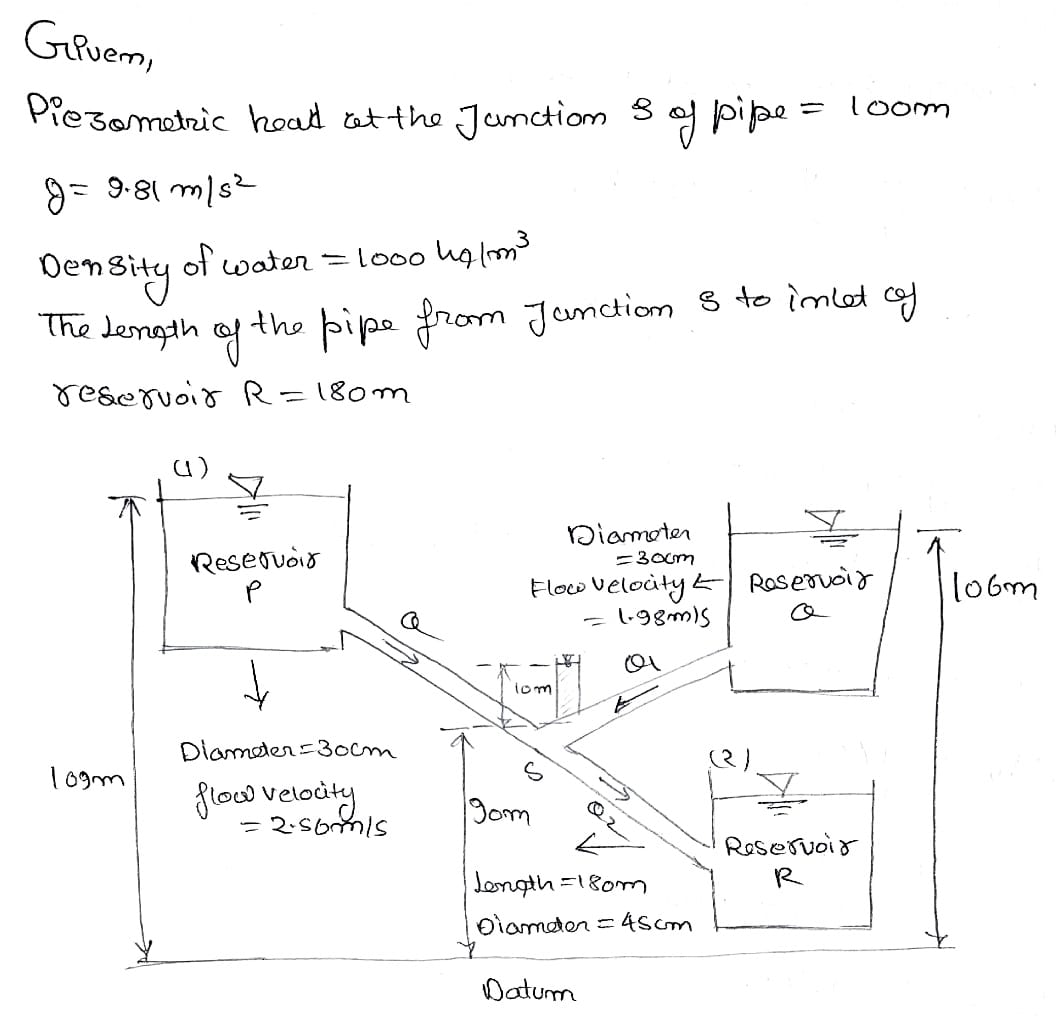 Given,
Piezometric head at the Junction S of pipe = 100m
g = 9.81 m/s²
Density of water = 1000 kg/m³
The Length of the pipe from Junction S to inlet of
reservoir R = 180m
(1)
Reservoir
P
Diameter = 30cm
flow velocity
= 2.56m/s
109m
Q
10m
S
90m
Q₂
Length = 180m
Diameter = 45cm
Diameter
= 30cm
Flow velocity
= 1.98m/s
Q₁
Reservoir
Q
106m
(2)
Reservoir
R
Datum